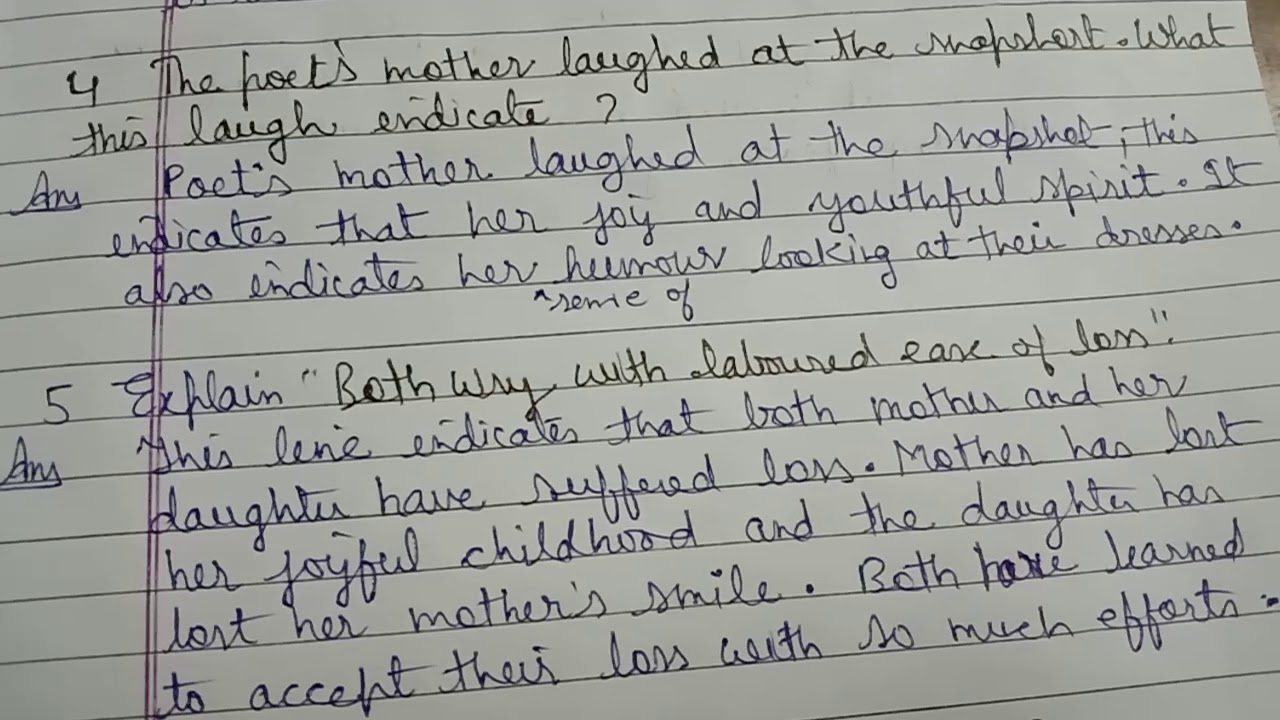 4 The poet's mother laughed at the snapshort. What
this laugh endicate ?
Ans Poet's mother laughed at the snapshot, this
endicates that her joy and youthful spirit. It
also endicates her humour looking at their dresses.
^sense of
5 Explain "Both wry with laboured ease of loss".
Ans This line endicates that both mother and her
daughter have suffered loss. Mother has lost
her joyful childhood and the daughter has
lost her mother's smile. Both have learned
to accept their loss with so much efforts.